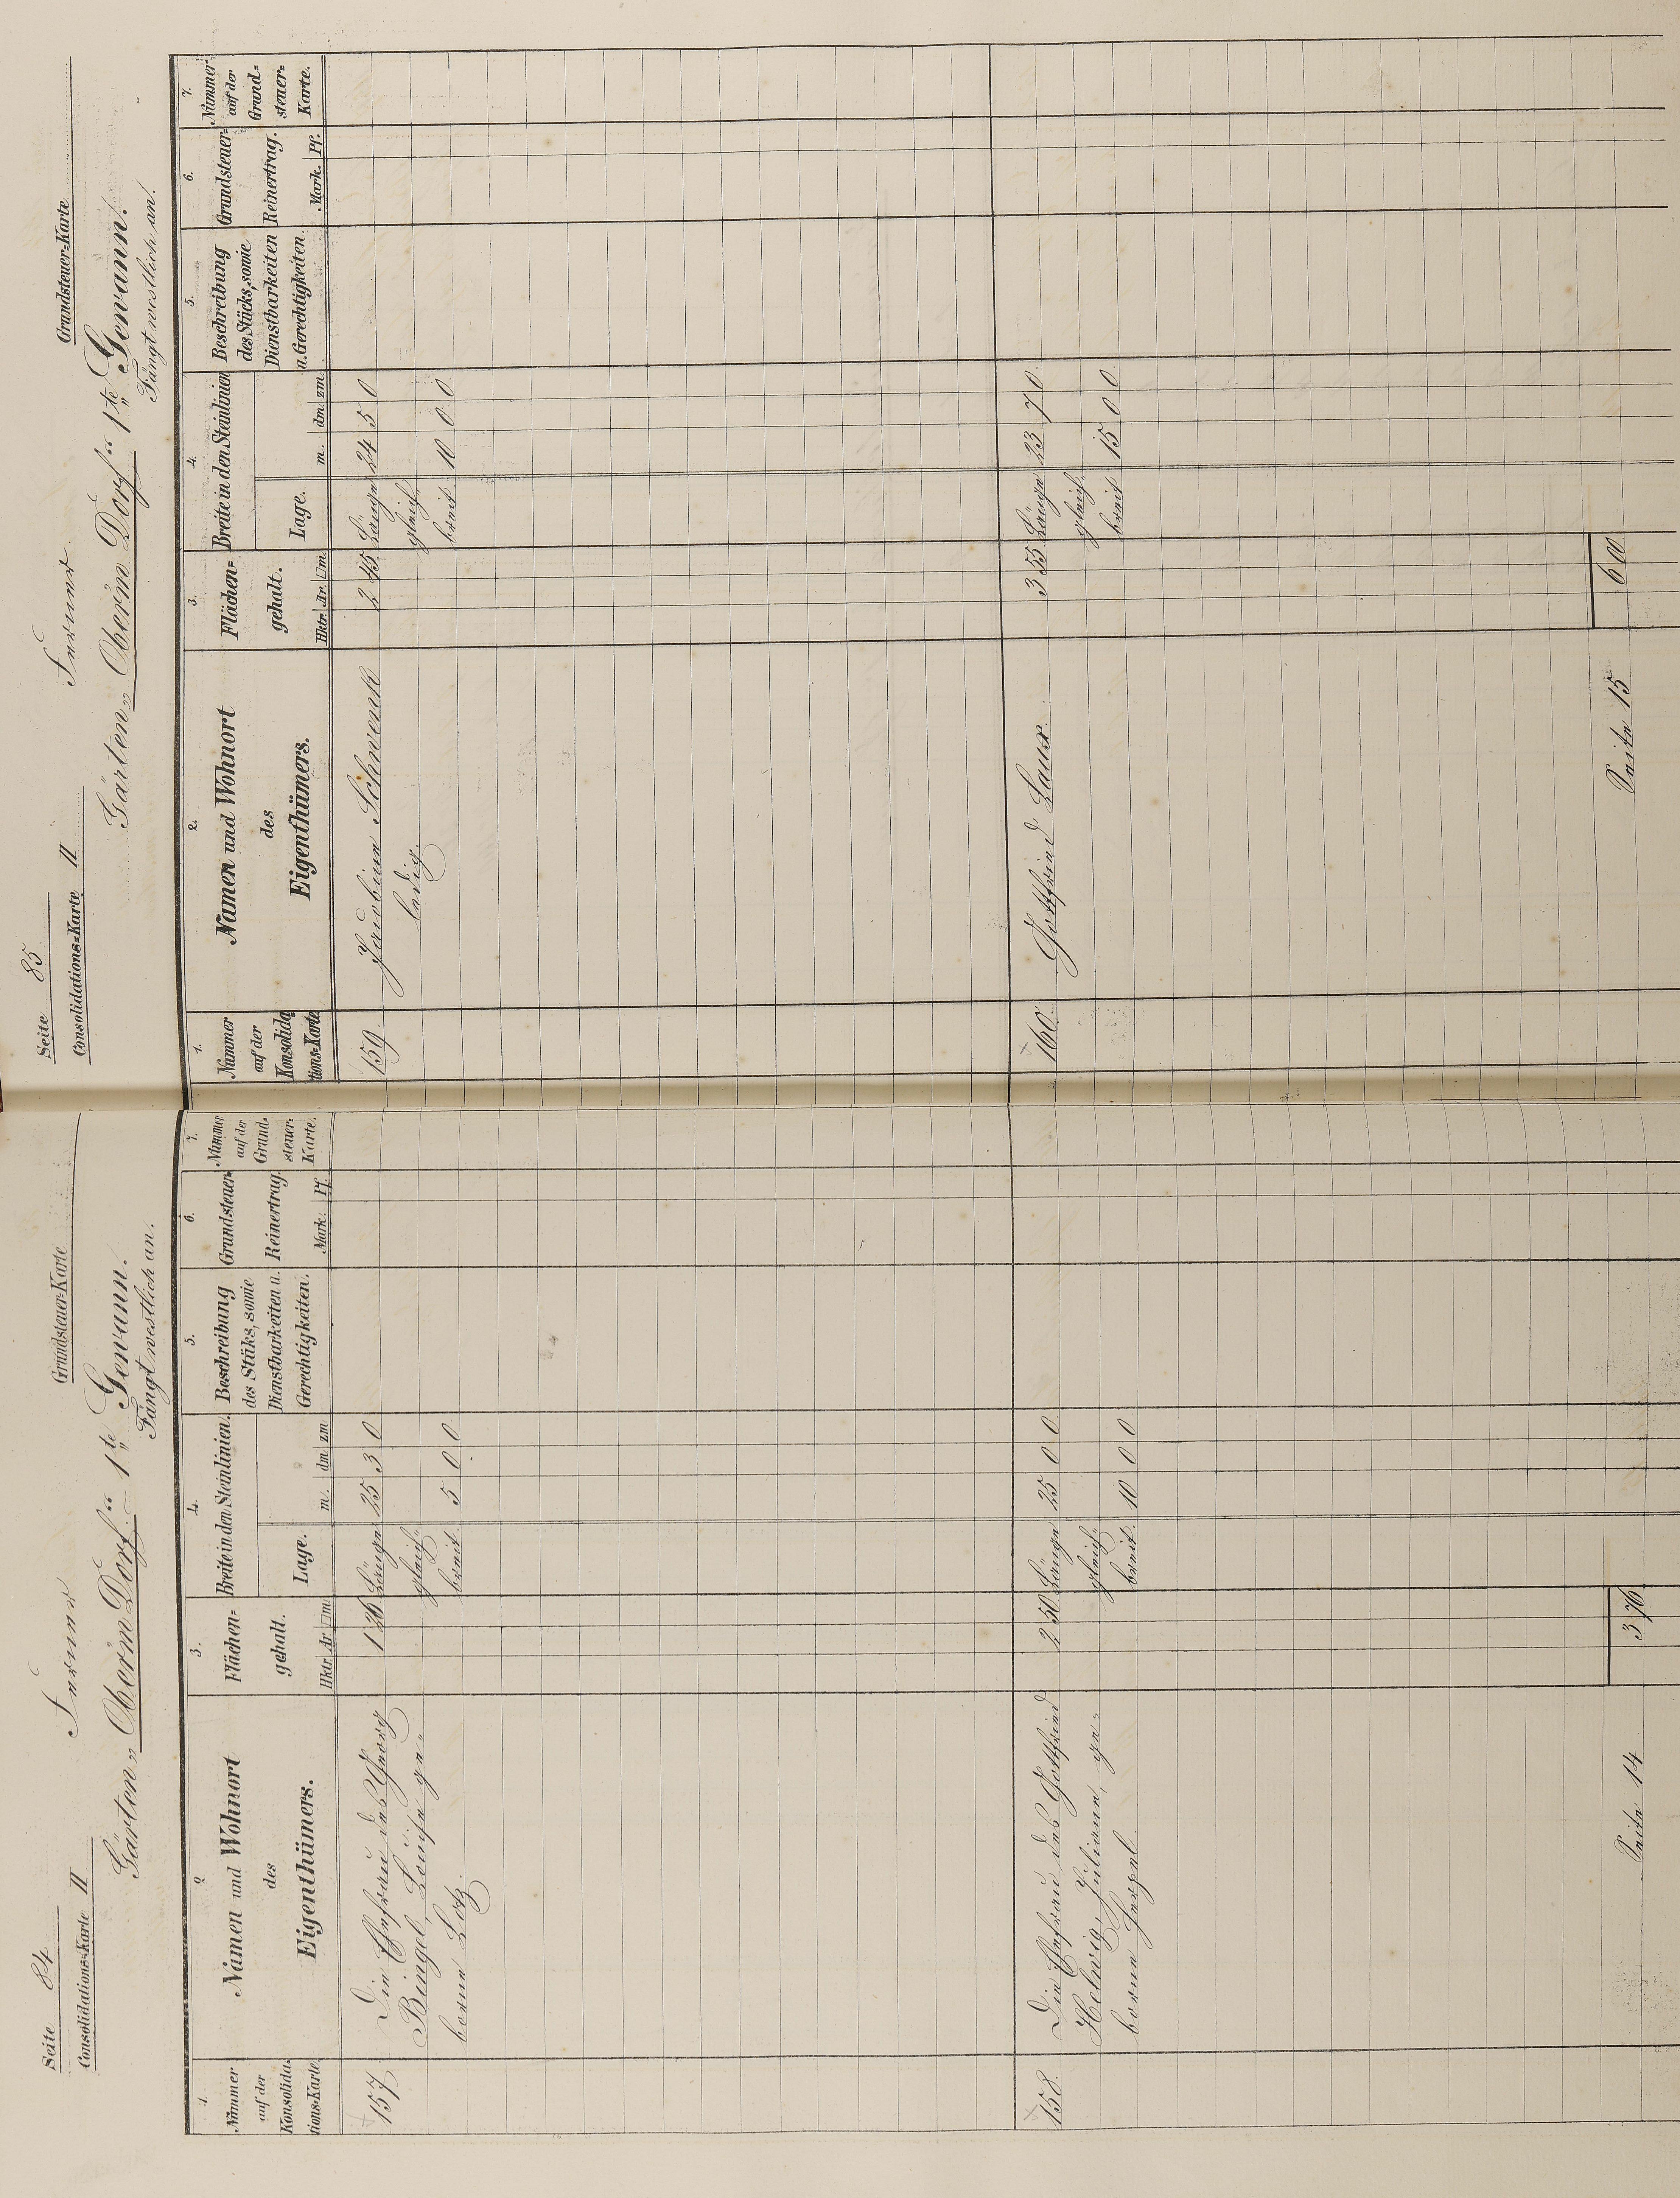 Seite 84
Ferner
Grundsteuer-Karte
Consolidations-Karte II
Gärten „Oberm Dorf“ 1te Gewann.
Fängt westlich an.
1. 2 3. 4. 5. 6. 7.
Nummer auf der Konsolida-tions-Karte.
Namen und Wohnort des Eigenthümers.
Flächen-gehalt.
Hktr. Ar □m
Breite in den Steinlinien.
Lage. m. dm zm
Beschreibung des Stüks, sowie Dienstbarkeiten u. Gerechtigkeiten.
Grundsteuer Reinertrag
Mark. Pf
Nummer auf der Grund-steuer-Karte.
157 Die Ehefrau des Georg 1 26 Länge 25 3 0
Bingel, Louise ge- gleich
borne Lotz. breit 5 0 0
158 Die Ehefrau des Gottfried 2 50 Länge 25 0 0
Helwig, Juliane, ge- gleich
borne breit 10 0 0
Seite 14 3 76
Seite 85
Ferner
Grundsteuer-Karte
Consolidations-Karte II
Gärten „Oberm Dorf“ 1te Gewann.
Fängt westlich an.
1. 2. 3. 4. 5. 6. 7.
Nummer auf der Konsolida tions-Karte
Namen und Wohnort des Eigenthümers.
Flächen-gehalt.
Hktr. Ar. □m.
Breite in den Steinlinien
Lage. m. dm zm.
Beschreibung des Stücks, sowie Dienstbarkeiten u. Gerechtigkeiten.
Grundsteuer-Reinertrag.
Mark. Pf.
Nummer auf der Grund-steuer-Karte.
159 Jacobine Schwenk 2 45 Länge 24 5 0
ledig. gleich
breit 10 0 0
160. Gottfried Laux. 3 55 Länge 23 7 0
gleich
breit 15 0 0
Seite 15 6 00